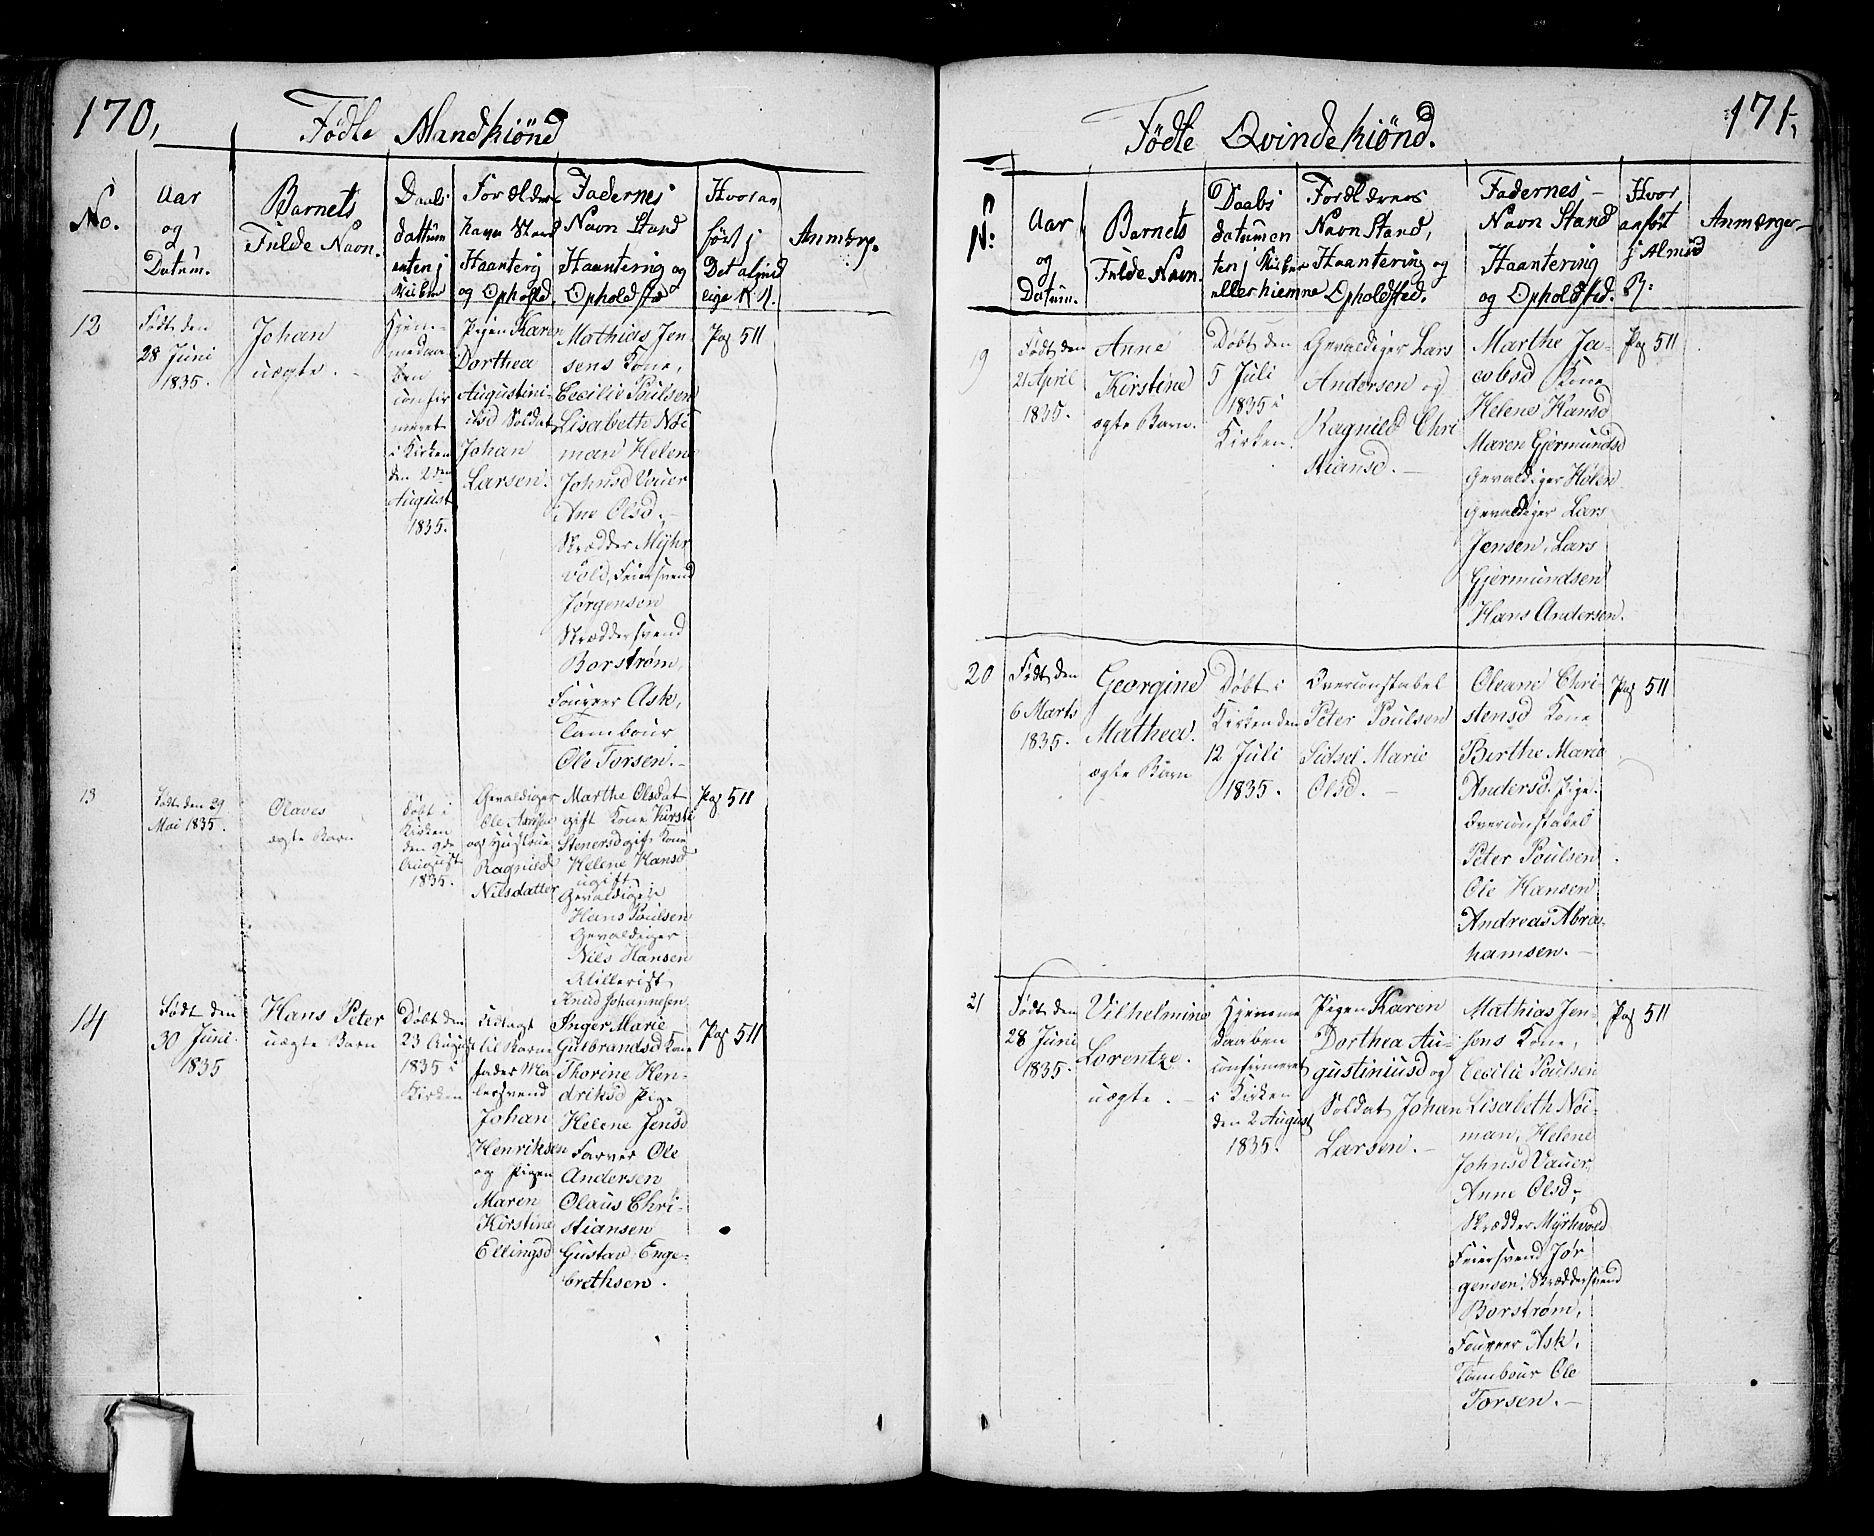 170,
Födte Mandkiönd
No.
Aar
og
Datum.
Barnets
Fulde Navn.
Daabs
dattum
enten j
Forældre
og Ophold
Fadernes
Navn Stand
Haantering og
Ophold
Hvor an
ført j
Det almind
elige R.
Anmærg.
12
Født den
28 Juni
1835.
Johan
uægte. -
Hjem-
medaa-
ben
confir
meret
i Kirken
den 2den
August
1835.
Pigen Karen
Dorthea
Augustini-
usd Soldat
Johan
Larsen.
Mathias Jen-
sens Kone,
Cecilie Poulsen
Lisabeth Noi
man Helene
Johnsd Vauer
Ane Olsd. -
Skrædder Myhr
vold, Feiersvend
Jørgensen
Skræddersvend
Borstrøm,
Foureer Ask,
Tambour
Ole Torsen. -
Pag 511
13
Født den 29
Mai 1835.
Olaves
ægte Barn
Døbt i
Kirken
den 9de
August
1835.
Gevaldiger
Ole
og Hustrue
Ragnild
Nilsdatter
Marthe Olsdat
gift Kone Kirsti
Stenersd gift Kone
Helene Hansd
ugift
Gevaldiger
Hans Poulsen
Gevaldiger
Nils Hansen
Knud Johannesen
Pag 511
14
Født den
30 Juni
1835
Hans Peter
uægte Barn
Døbt den
23 August
1835 i
Kirken
Udlagt
til Barne
fader Ma-
lersvend
Johan
Henriksen
og Pigen
Maren
Kirstine
Ellingsd
Inger Marie
Gulbrandsd Kone
Thorine Hen-
driksd Pige
Helene Jensd
Farver Ole
Andersen
Olaus Chri-
stiansen
Gustav Enge-
brethsen.
Pag 511
171,
Födte Qvindekiönd.
N:
Aar
og
Datum.
Barnets
Fulde Navn.
Daabs
datumen
ten j Kirken
eller hiemme
Forældrenes
Navn Stand,
Haantering og
Opholdsted.
Fadernes -
Navn Stand
Haantering
og Opholdsted.
Hvor
anført
j Almind
R:
Anmærger-
19
Født den
21 April
1835.
Anne
Kirstine
ægte Barn.
Døbt den
5 Juli
1835 i
Kirken.
Gevaldiger Lars
Andersen og
Ragnild Chri
stiansd. -
Marthe Ja-
cobsd Kone
Helene Hansd
Maren Gjermundsd
Gevaldiger Holen
Gevaldiger Lars
Jensen, Lars
Gjermundsen
Hans Andersen.
Pag 511
20
Født den
6 Marts
1835.
Georgine
Mathea.
ægte Barn
Døbt i
Kirken den
12 Juli
1835.
Overconstabel
Peter Poulsen
Sidsel Marie
Olsd. -
Oleane Chri-
stensd Kone
Birthe Marie
Andersd. Pige.
Overconstabel
Peter Poulsen
Ole Hansen
Andreas Abra-
hamsen. -
Pag 511
21
Født den
28 Juni
1835.
Vilhelmine
Lorentze.
uægte. -
Hjemme
daaben
confirmeret
i Kirken
den 2 August
1835.
Pigen Karen
Dorthea Au-
gustiniusd og
Soldat Johan
Larsen. -
Mathias Jen-
sens Kone,
Cecilie Poulsen
Lisabeth Noi-
man, Helene
Johnsd Vauer,
Anne Olsd,
Skrædder Myrhvold
Feiersvend Jør-
gensen, Skræddersvend
Borstrøm,
Foureer Ask,
Tambour Ole
Torsen. -
Pag 511